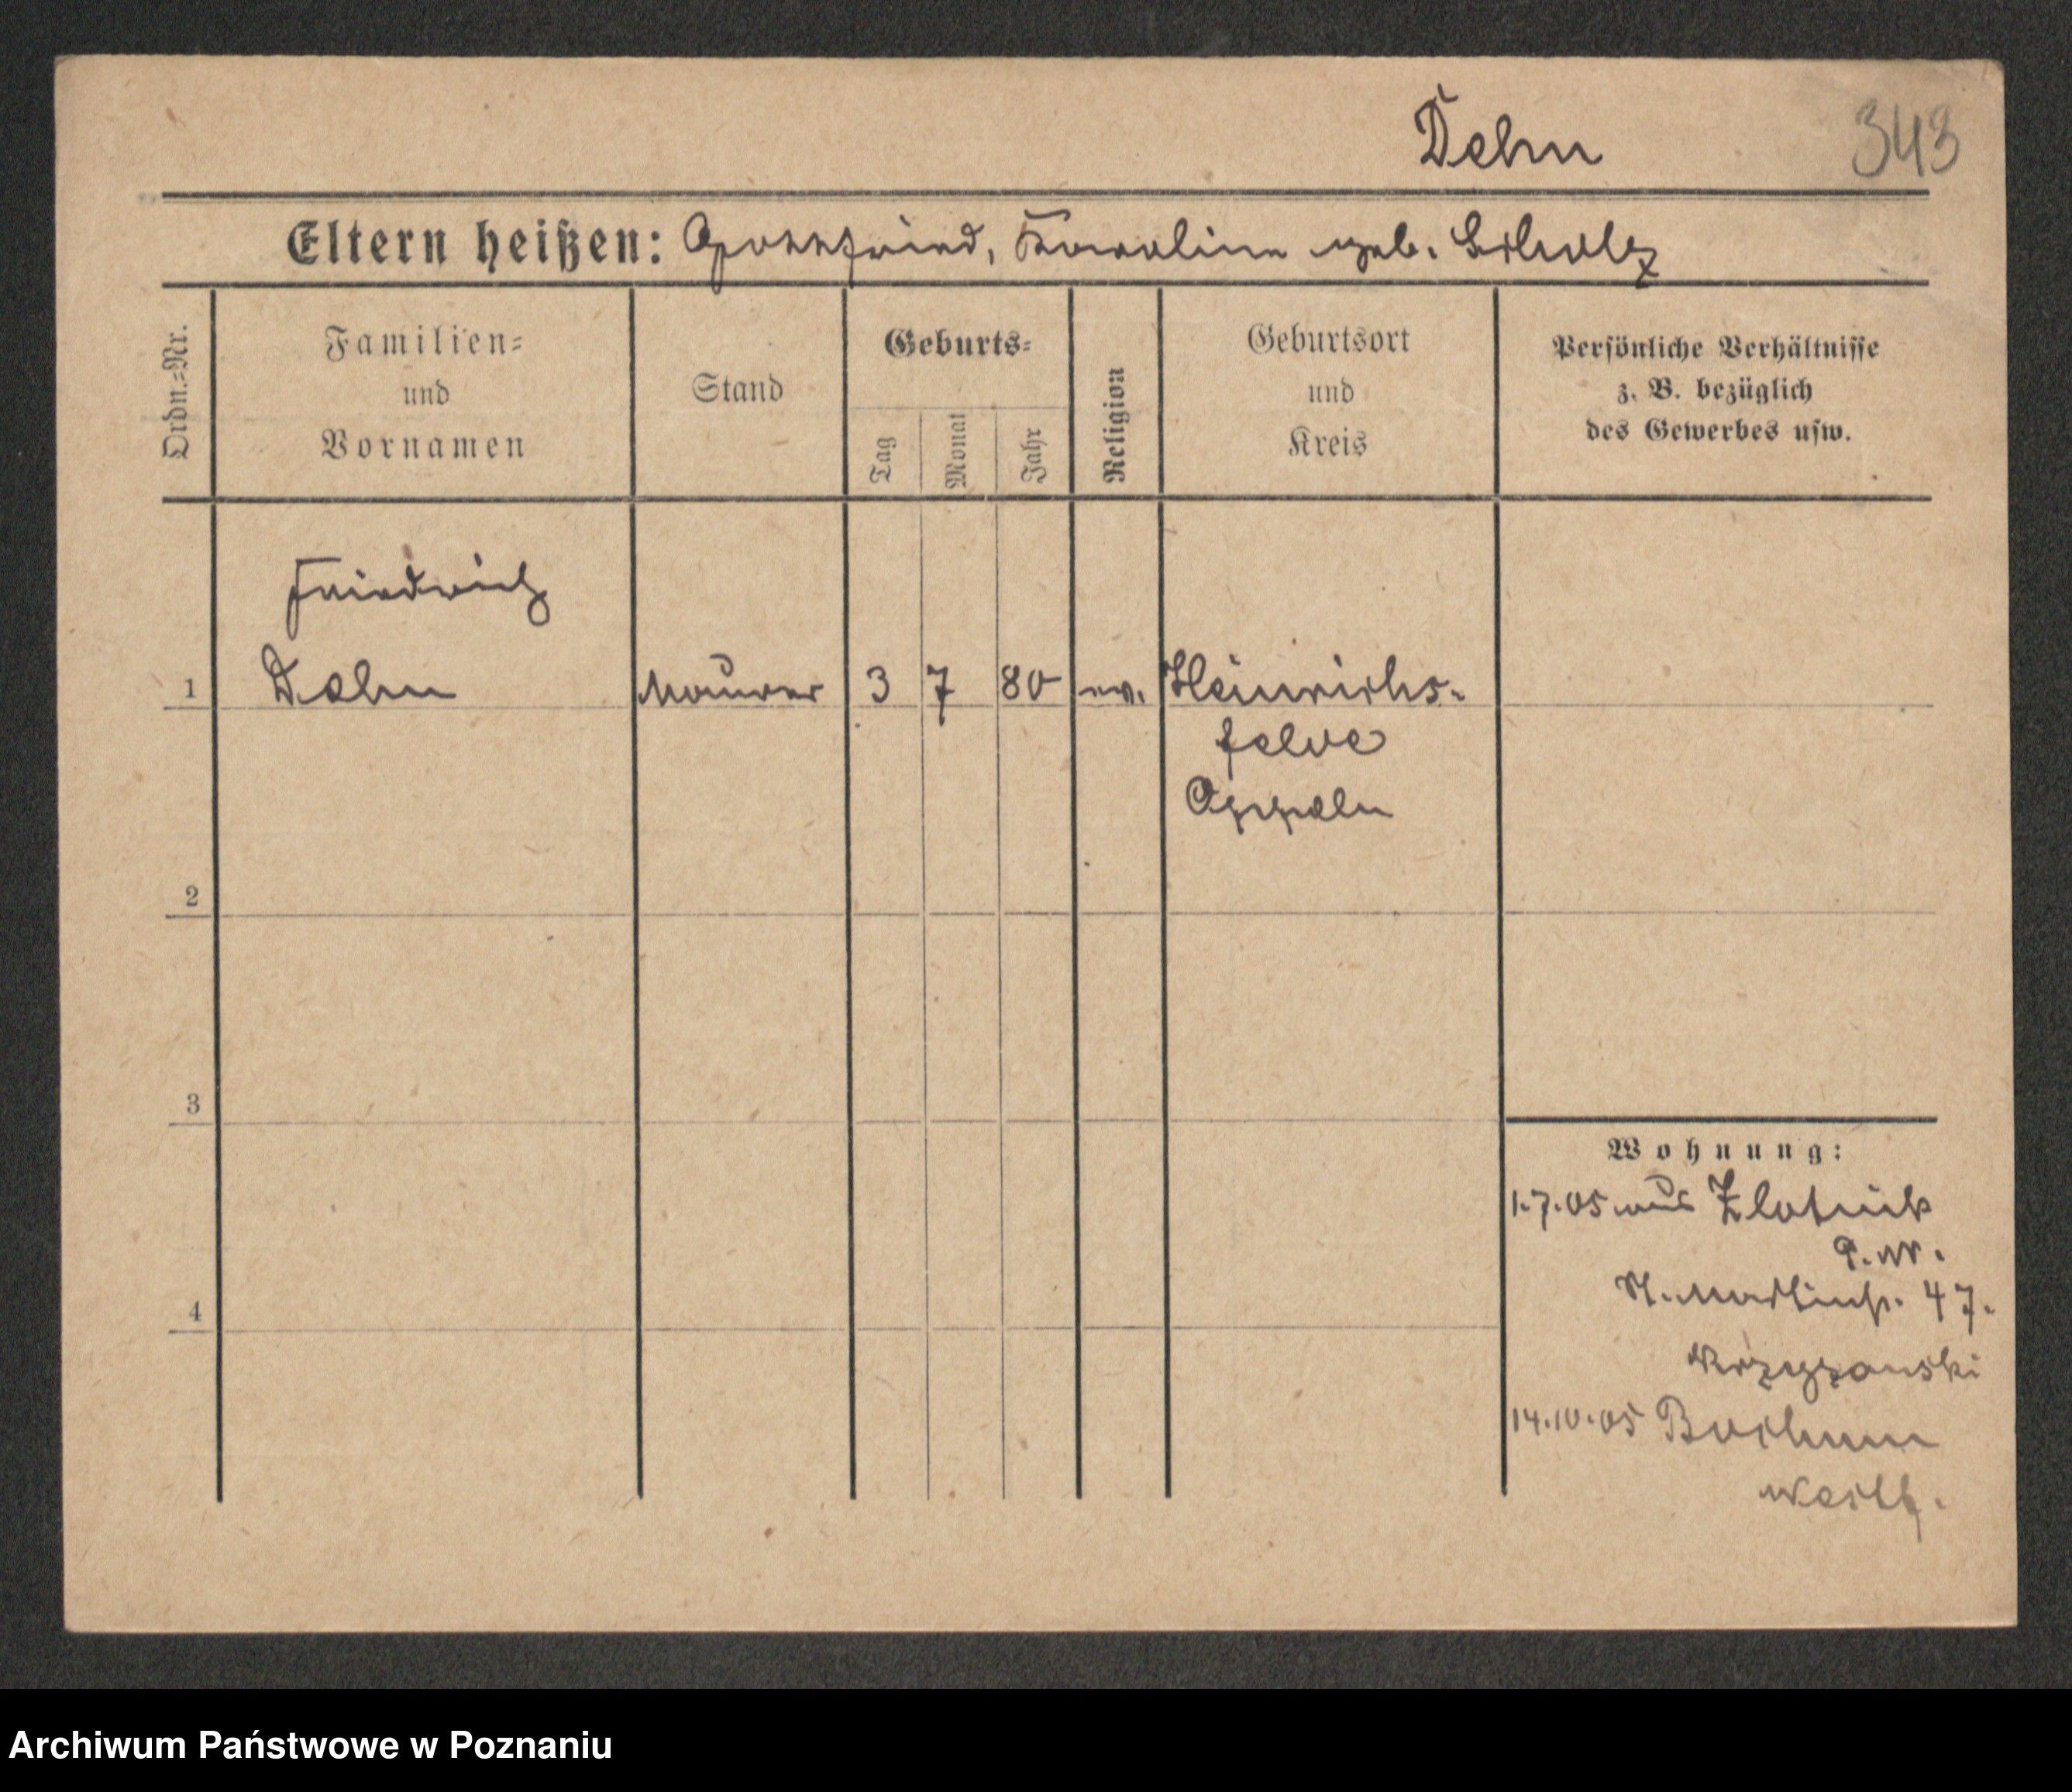 Dehn
343
Eltern heißen: Gottfried, Karoline geb. Scholz
Ordn.=Nr.
Familien=
und
Vornamen
Stand
Geburts=
Tag
Monat
Jahr
Religion
Geburtsort
und
Kreis
Persönliche Verhältnisse
z. B. bezüglich
des Gewerbes usw.
Friedrich
1 Dehn Maurer 3 7 80 ev. Heinrichs-
felde
Oppeln
2
3
4
Wohnung:
1.7.05 aus Zlotnik
P. W.
St. Martinstr. 47.
14.10.05 Bochum
Westf.
Archiwum Państwowe w Poznaniu